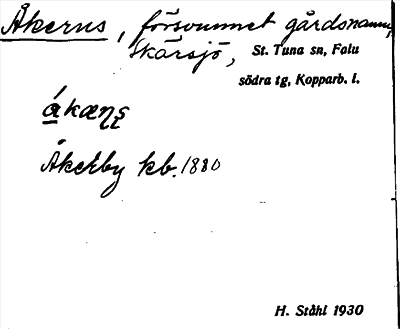 Åkerns, försvunnet gårdsnamn,
Skarsjö, St. Tuna sn, Falu
södra tg, Kopparb. l.
ákæɳʂ
Åkerby kb. 1880
H. Ståhl 1930